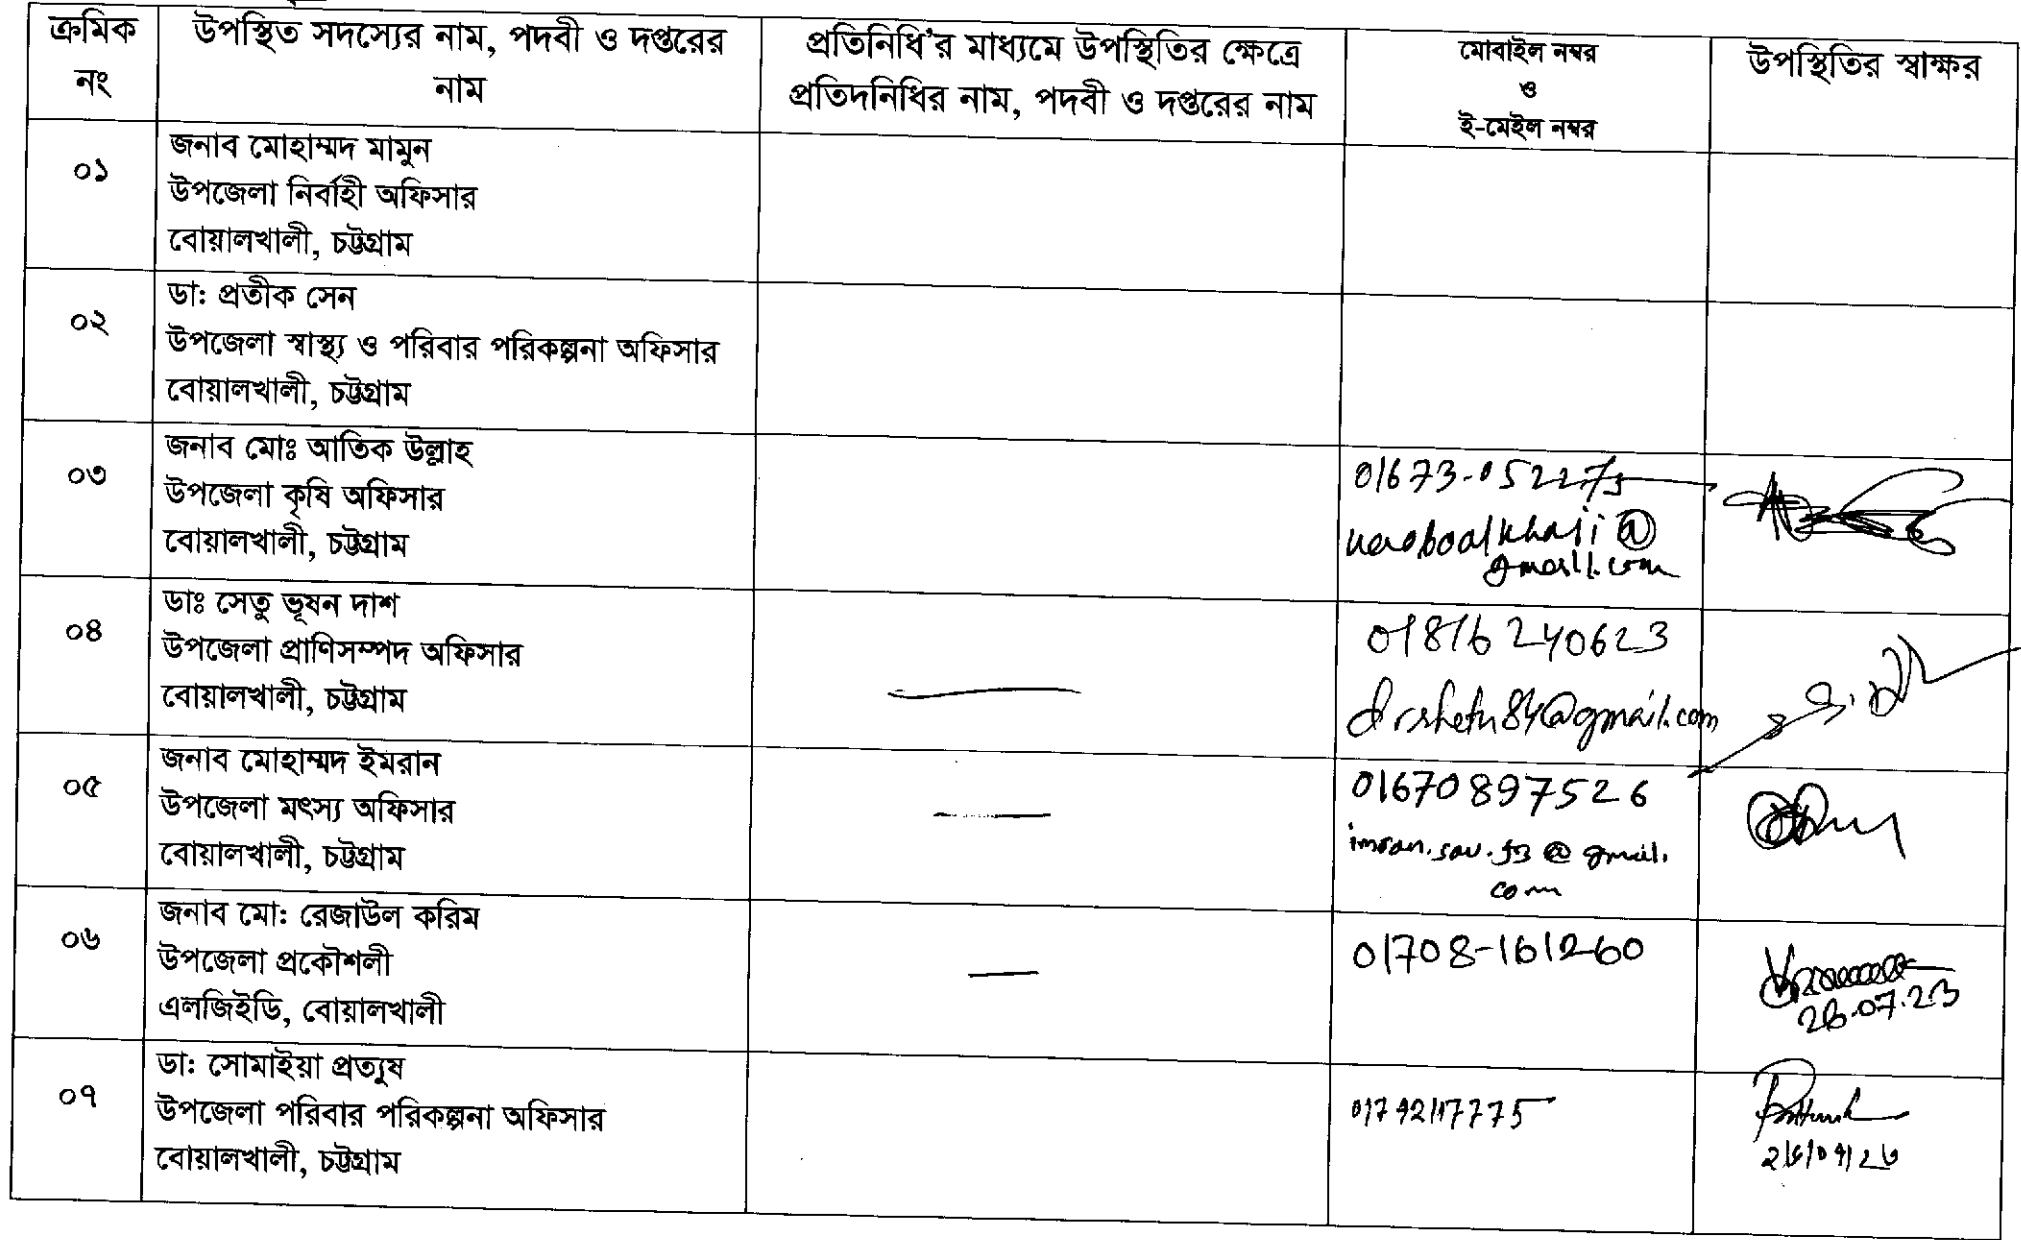 ক্রমিক
নং
উপস্থিত সদস্যের নাম, পদবী ও দপ্তরের
নাম
প্রতিনিধি'র মাধ্যমে উপস্থিতির ক্ষেত্রে
প্রতিদনিধির নাম, পদবী ও দপ্তরের নাম
মোবাইল নম্বর
ও
ই-মেইল নম্বর
উপস্থিতির স্বাক্ষর
০১
জনাব মোহাম্মদ মামুন
উপজেলা নির্বাহী অফিসার
বোয়ালখালী, চট্টগ্রাম
০২
ডা: প্রতীক সেন
উপজেলা স্বাস্থ্য ও পরিবার পরিকল্পনা অফিসার
বোয়ালখালী, চট্টগ্রাম
০৩
জনাব মোঃ আতিক উল্লাহ
উপজেলা কৃষি অফিসার
বোয়ালখালী, চট্টগ্রাম
01673-052275
@
gmail.com
০৪
ডাঃ সেতু ভূষন দাশ
উপজেলা প্রাণিসম্পদ অফিসার
বোয়ালখালী, চট্টগ্রাম
01816240623
drshetu84@gmail.com
০৫
জনাব মোহাম্মদ ইমরান
উপজেলা মৎস্য অফিসার
বোয়ালখালী, চট্টগ্রাম
01670897526
@ gmail.
com
০৬
জনাব মো: রেজাউল করিম
উপজেলা প্রকৌশলী
এলজিইডি, বোয়ালখালী
01708-161260
26.07.23
০৭
ডা: সোমাইয়া প্রত্যুষ
উপজেলা পরিবার পরিকল্পনা অফিসার
বোয়ালখালী, চট্টগ্রাম